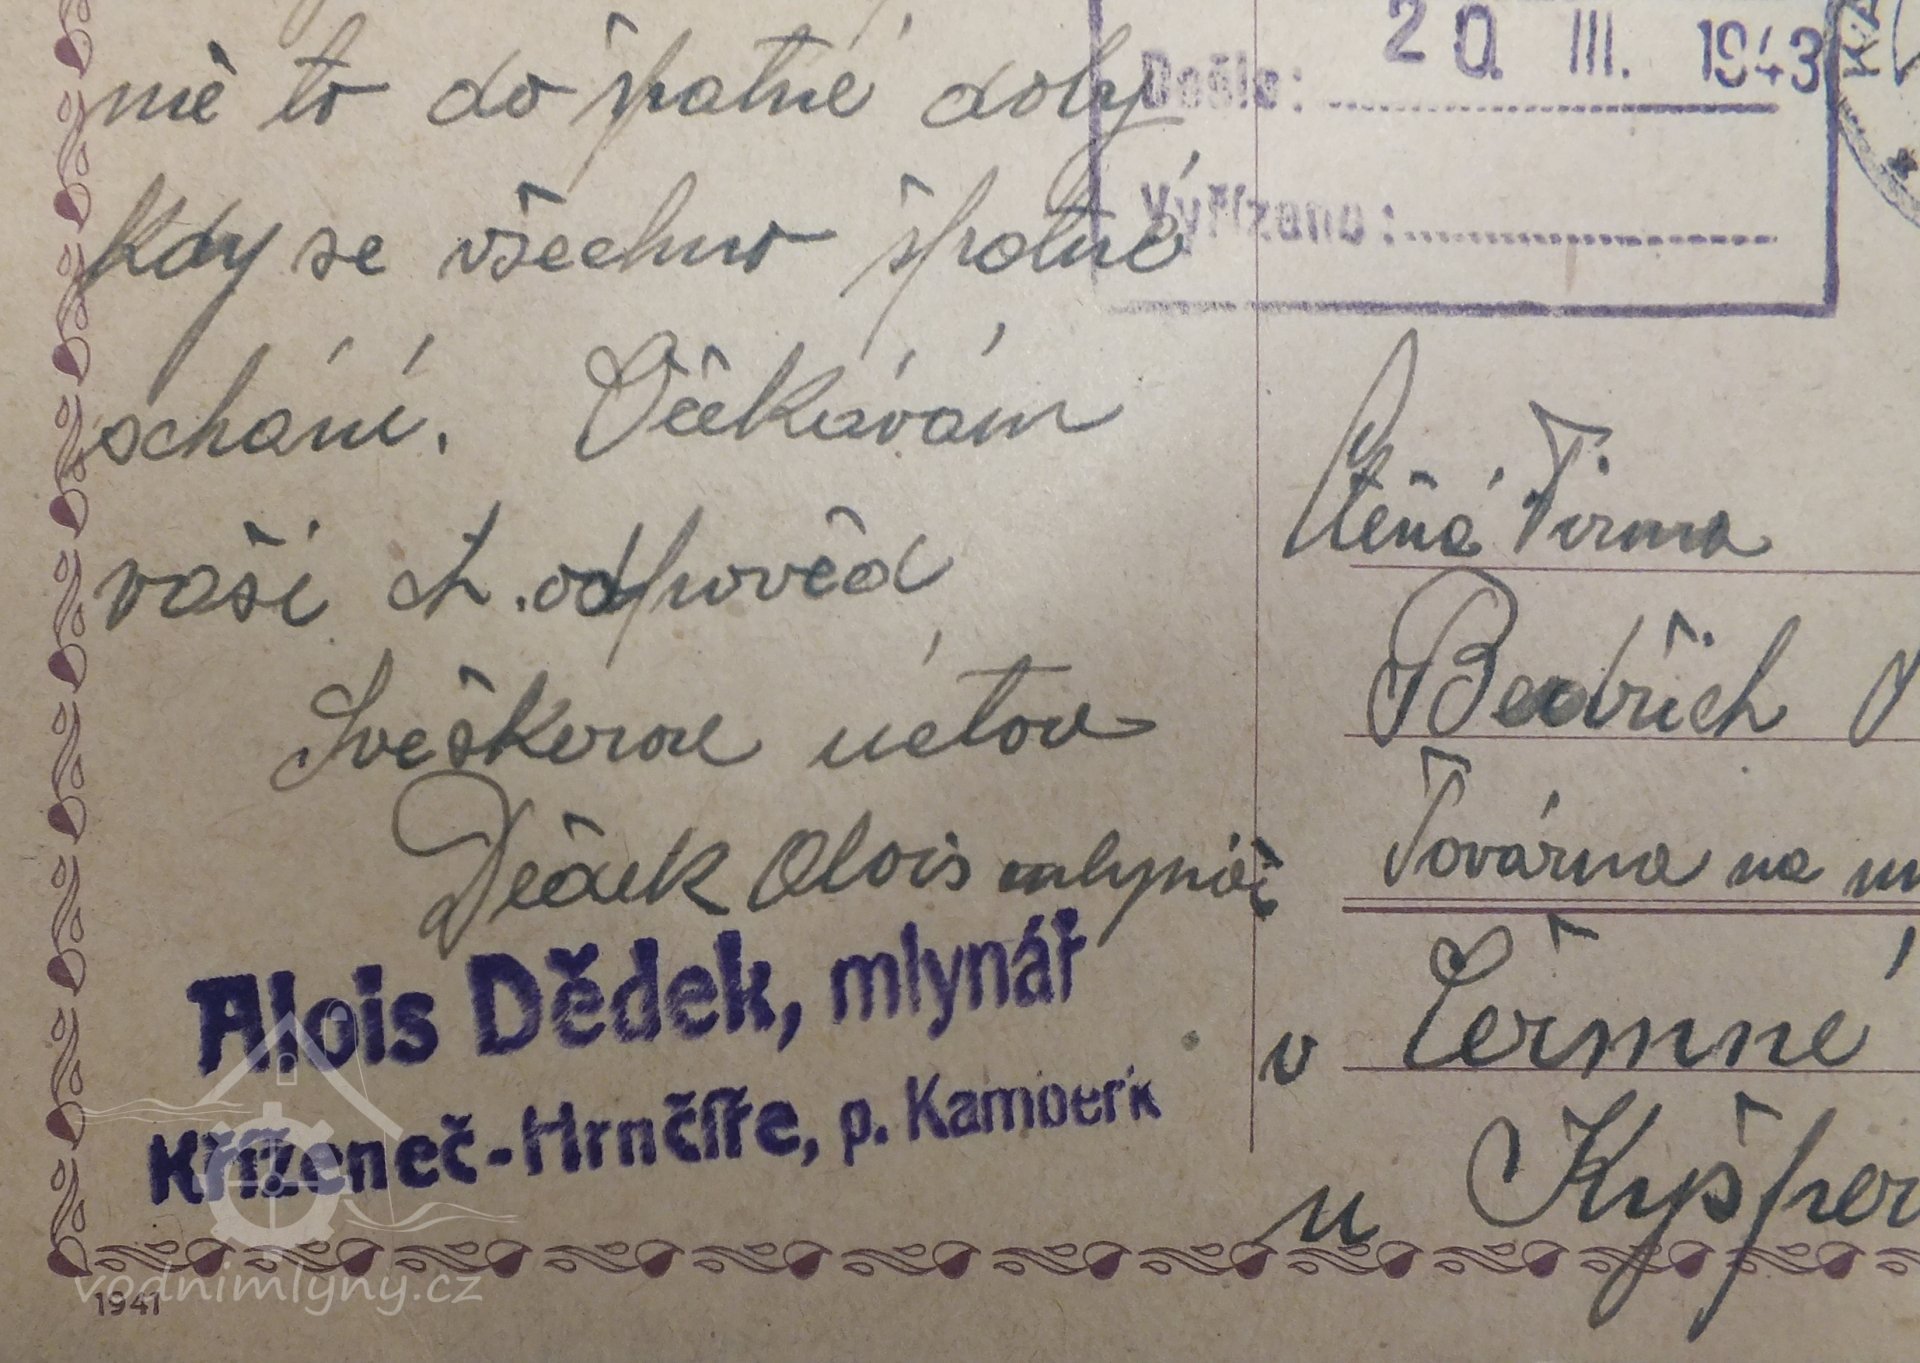 mě to do špatné doby
kdy se všechno špatně
schání. Očékávám
vaší ct. odpověd
Sveškerou úctou
Dědek Alois mlynář
Alois Dědek, mlynář
Kříženeč-Hrnčíře, p. Kamberk
1941
20. III. 1943
Došlo:
Vyřízeno:
Ctěná Firma
Bedřich
Továrna na
v Čermné
u Kyšper
vodnimlyny.cz